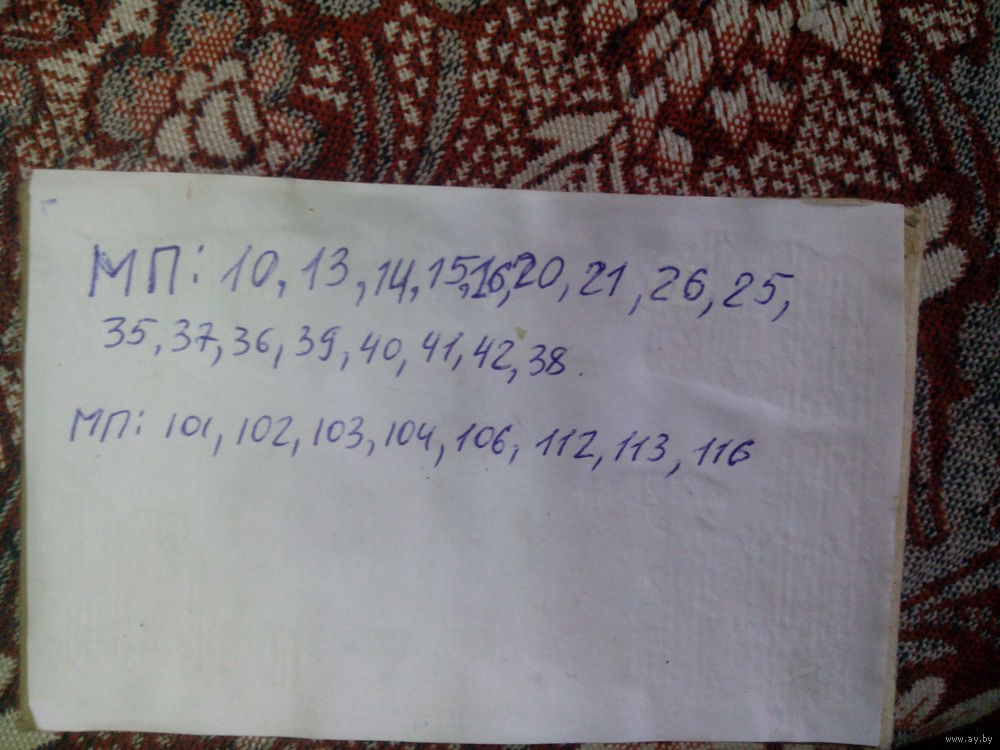 МП: 10, 13, 14, 15, 16, 20, 21, 26, 25,
35, 37, 36, 39, 40, 41, 42, 38.
МП: 101, 102, 103, 104, 106, 112, 113, 116
www.ay.by